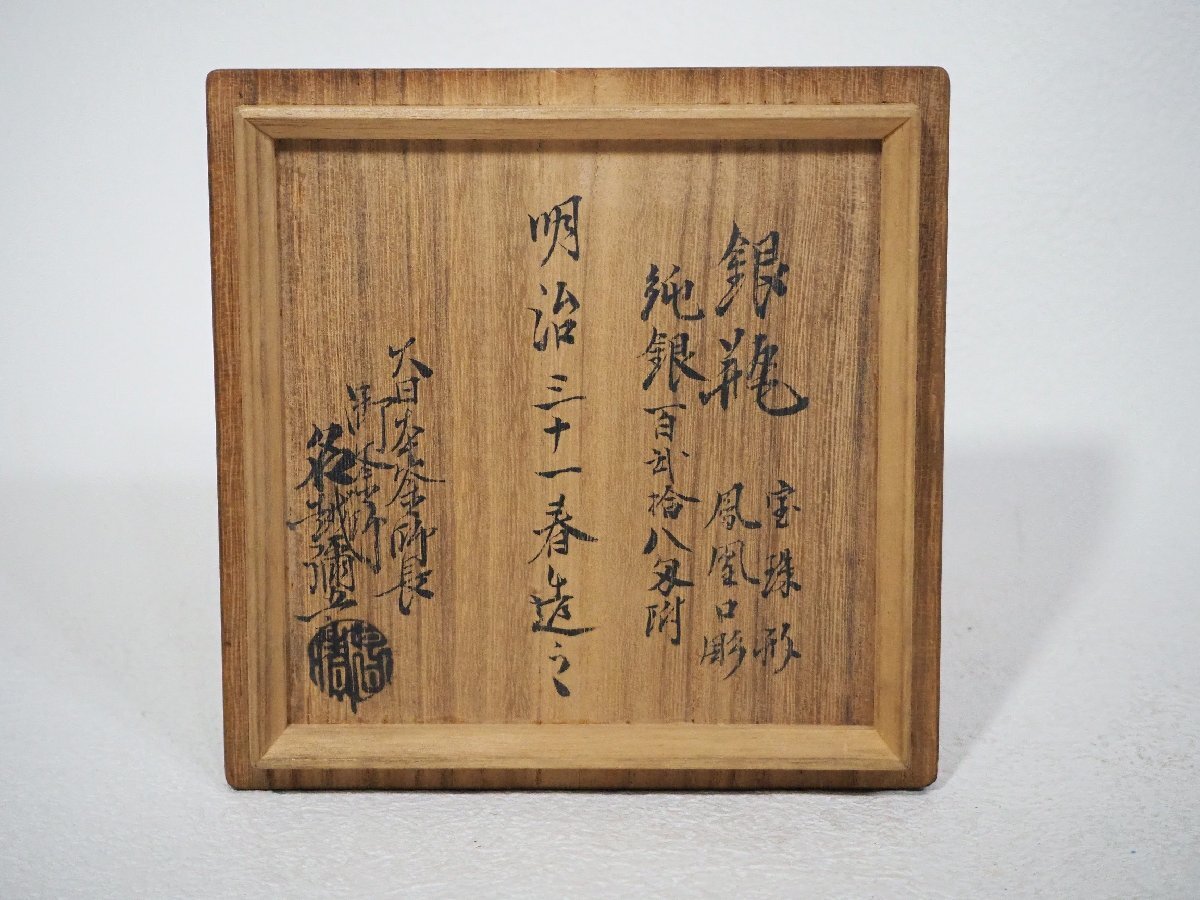 銀瓶
宝珠形
鳳凰口彫
純銀百弐拾八匁附
明治三十一春造之
大日本釜師長
御釜師
名越彌五